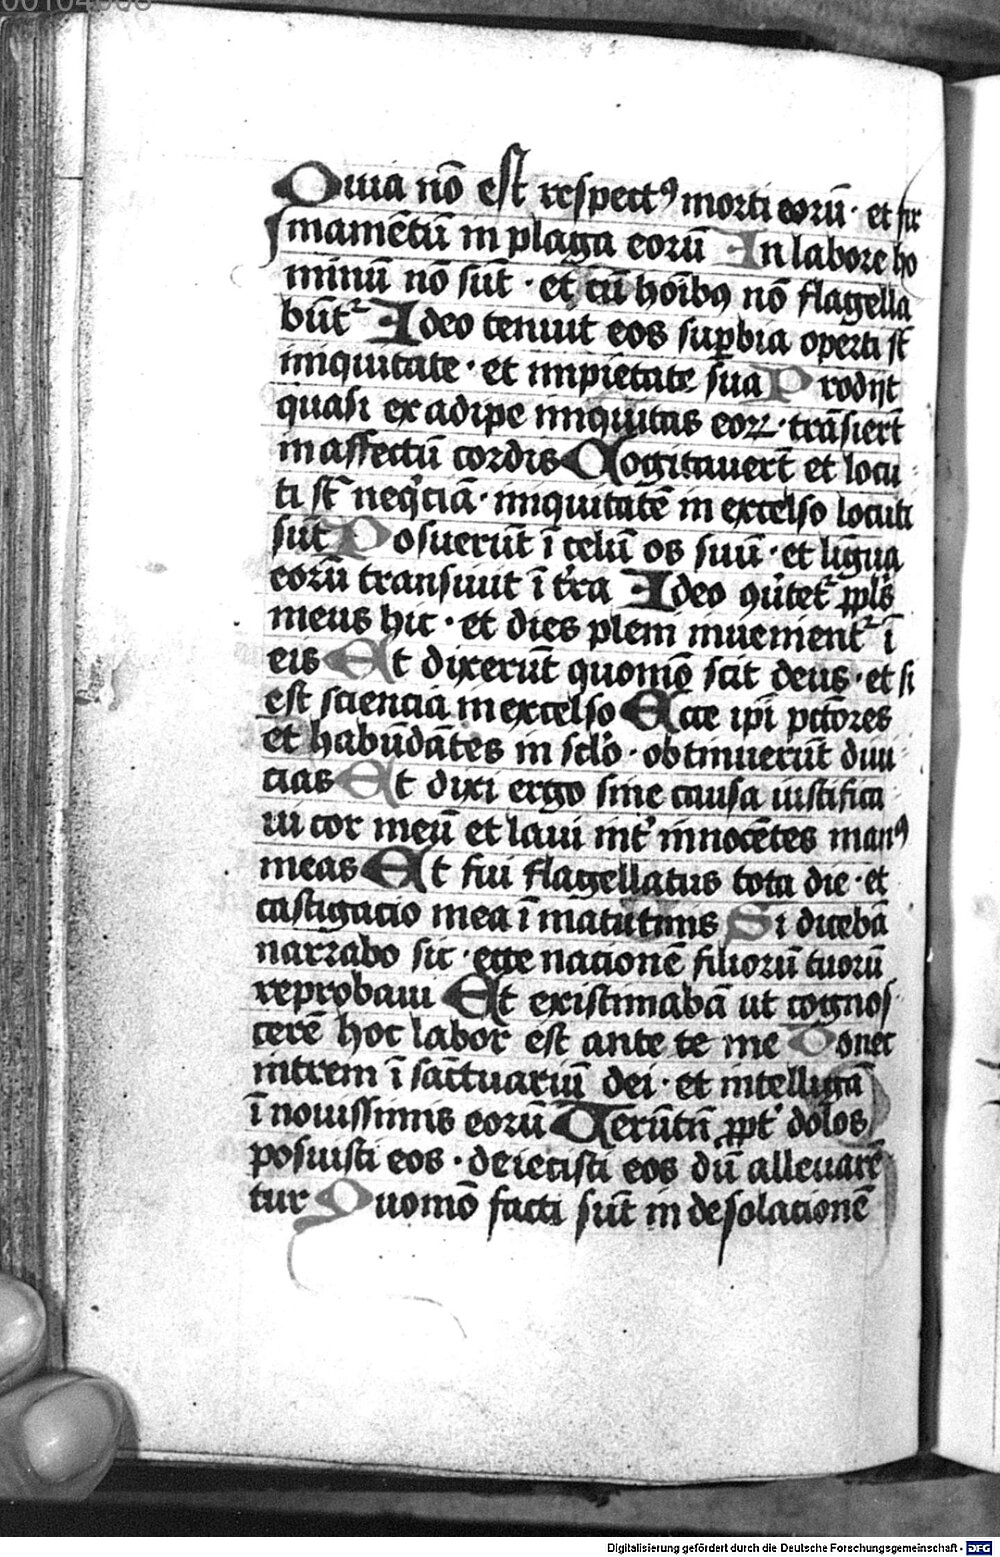 00104008
Quia nō est respectꝰ morti eorū · et fir
mamētū in plaga eorū In labore ho
minū nō sūt · et cū hoībꝫ nō flagella
būt᷑ Ideo tenuit eos suꝑbia operti st̄
iniquitate · et impietate sua Prodijt
quasi ex adipe iniquitas eoꝝ · trāsiert̄
in affectū cordis Cogitauert̄ et locu
ti st̄ neqͥciā · iniquitatē in excelso locuti
sūt Posuerūt ī celū os suū · et lingua
eorū transiuit ī t̓ra Ideo ꝯūtet᷑ ppl̓s
meus hic · et dies pleni inuenient᷑ ī
eis Et dixerūt quomō scit deus · et si
est sciencia in excelso Ecce ipī pctōres
et habūdātes in sclō · obtinuerūt diui
cias Et dixi ergo sine causa iustifica
ui cor meū et laui int̓ innocētes manꝰ
meas Et fui flagellatus tota die · et
castigacio mea ī matutinis Si dicebā
narrabo sic · ecce nacionē filiorū tuorū
reprobaui Et existimabā ut cognos
cerē hoc labor est ante te me Donec
intrem ī sāctuariū dei · et intelligā
ī nouissimis eorū Uerūtn̄ ꝓpt̓ dolos
posuisti eos · deiecisti eos dū alleuarē
tur Quomō facti sūt in desolacionē
Digitalisierung gefördert durch die Deutsche Forschungsgemeinschaft - DFG